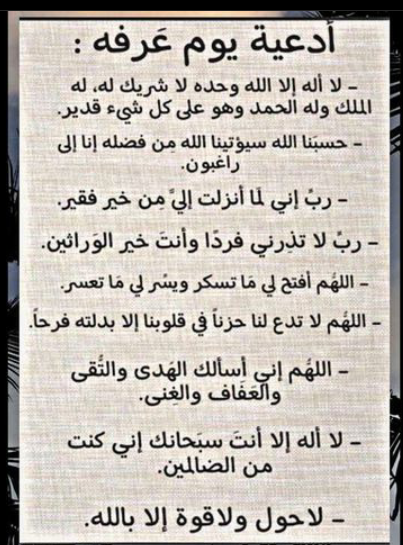 أدعية يوم عَرفه :
- لا أله إلا الله وحده لا شريك له، له
الملك وله الحمد وهو على كل شيء قدير.
- حسبَنا الله سيؤتينا الله مِن فضله إنا إلى
راغبون.
- ربِّ إني لَما أنزلت إليَّ مِن خير فقير.
- ربِّ لا تذِرني فردًا وأنتَ خير الوَراثين.
- اللهُم أفتحَ لي مَا تسكر ويسُر لي مَا تعسر.
- اللهُم لا تدع لنا حزناً في قلوبنا إلا بدلته فرحاً.
- اللهُم إني أسألك الهَدى والتُقى
والعَفَاف والغِنى.
- لا أله إلا أنتَ سبَحانك إني كنت
من الضالمين.
- لاحول ولاقوة إلا بالله.